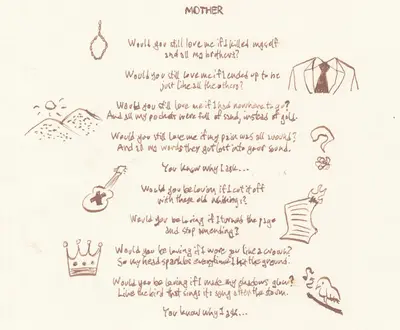 MOTHER
Would you still love me if I killed myself
and all my brothers?
Would you still love me if I ended up to be
just like all the others?
Would you still love me if I had nowhere to go?
And all my pockets were full of sand, instead of gold.
Would you still love me if my pain was all around?
And so my words they got lost into your sound.
You know why I ask...
Would you be loving if I cut it off
with those old
Would you be loving if I turned the page
and stop
Would you be loving if I wore you like a crown?
So my head sparkles everytime I hit the ground.
Would you be loving if I made my shadows glow?
Like the bird that sings its song after the storm.
You know why I ask...